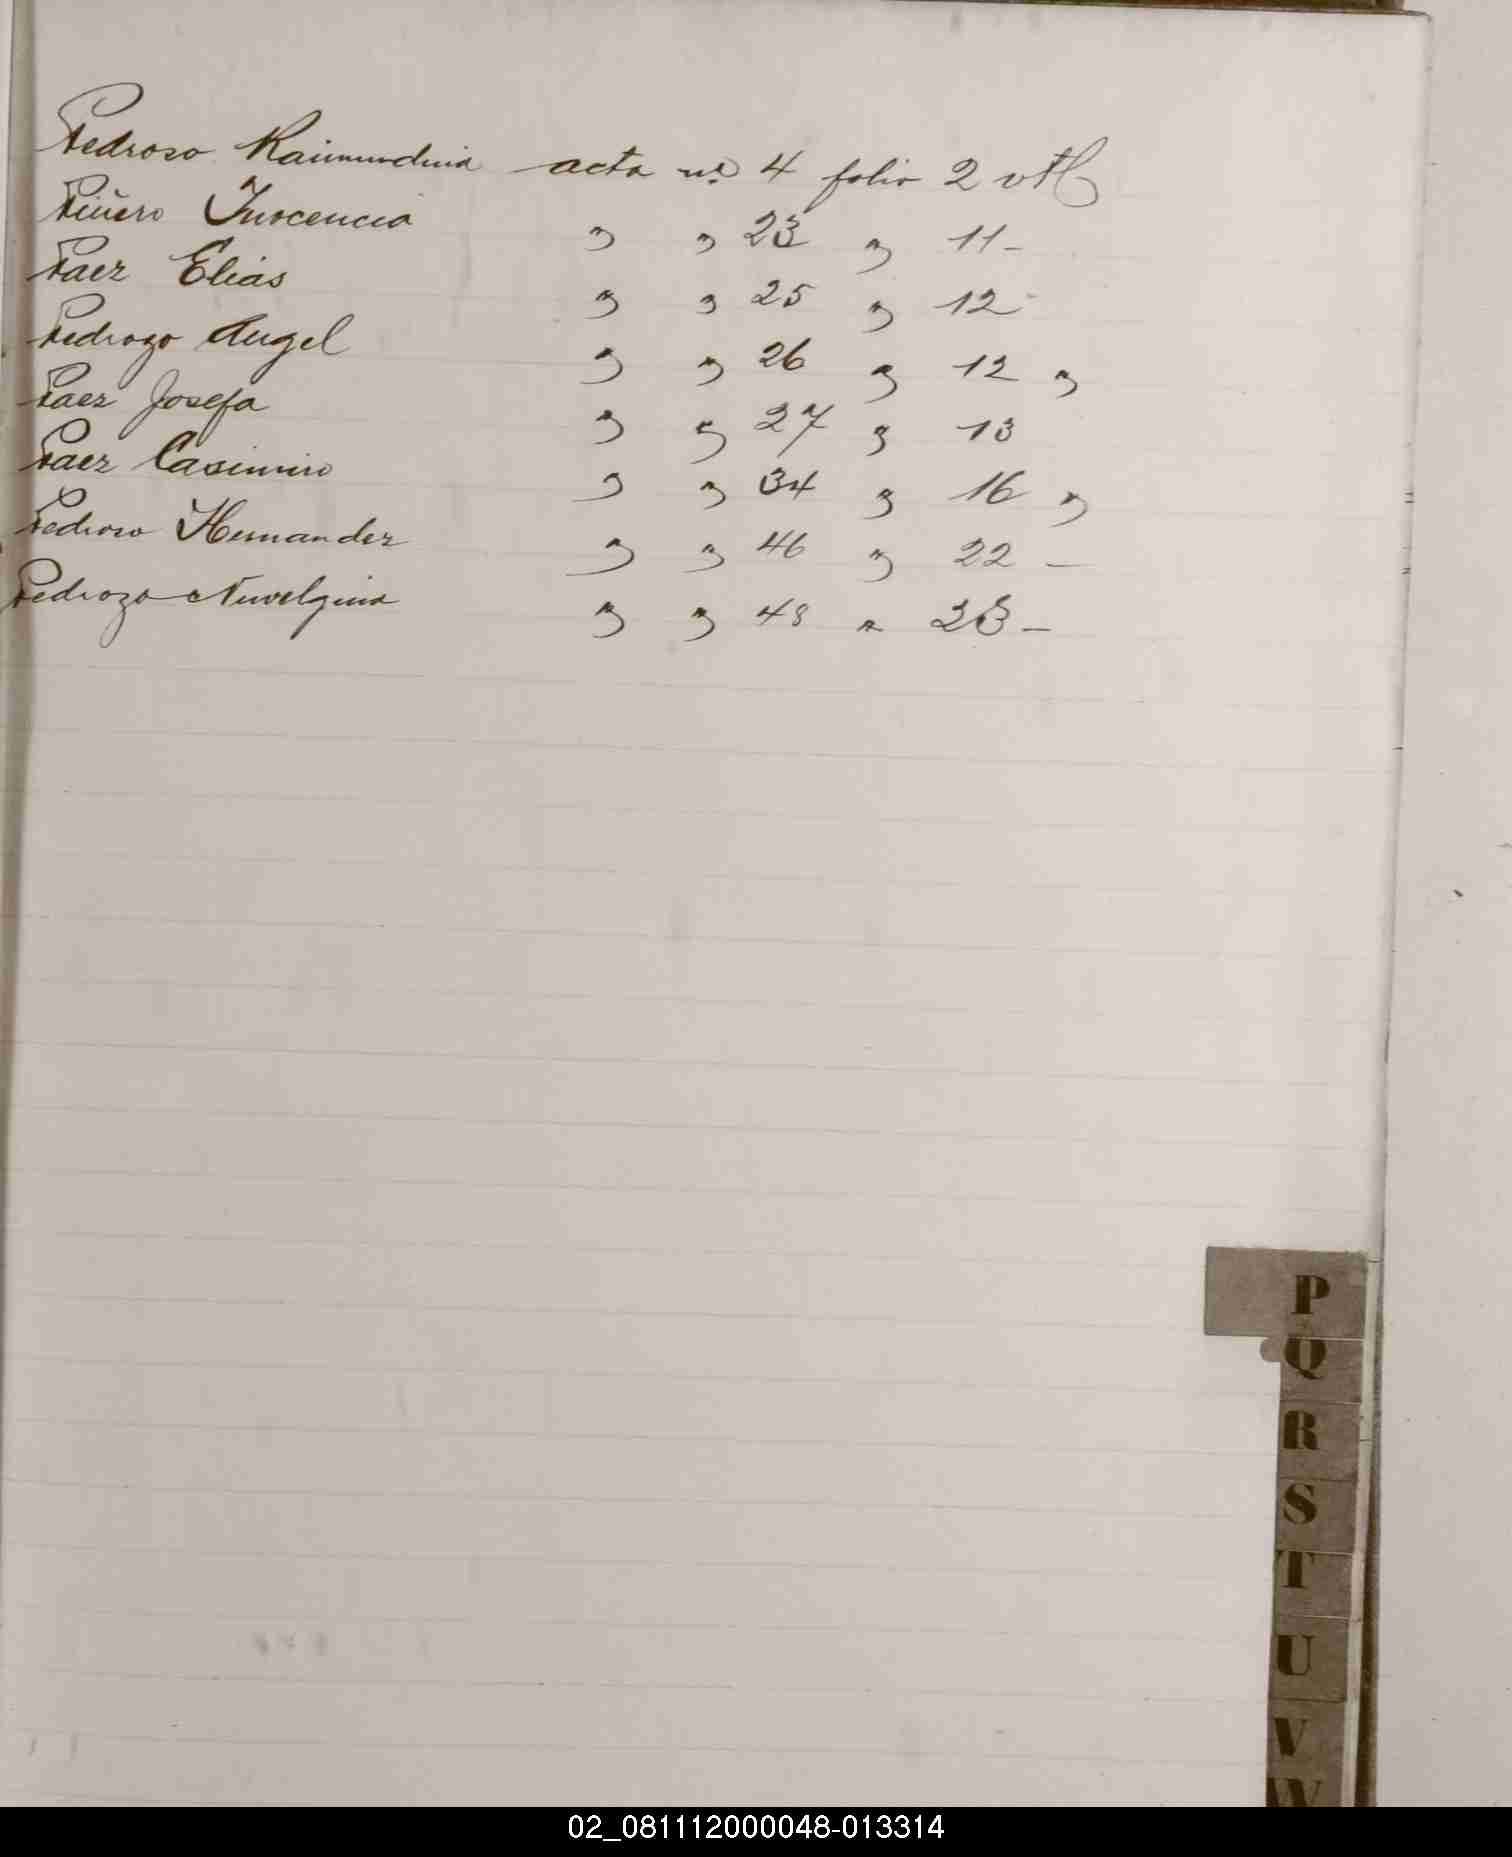 Pedroso Raimundina acta nº 4 folio 2 vtª
Piñero Inocencia " " 23 " 11 -
Paez Elias " " 25 " 12 -
Pedrozo Angel " " 26 " 12 "
Paez Josefa " " 27 " 13
Paez Casimiro " " 34 " 16 "
Pedroso Hernandez " " 46 " 22 -
Pedrozo " " 48 " 23 -
P
Q
R
S
T
U
V
W
02_081112000048-013314